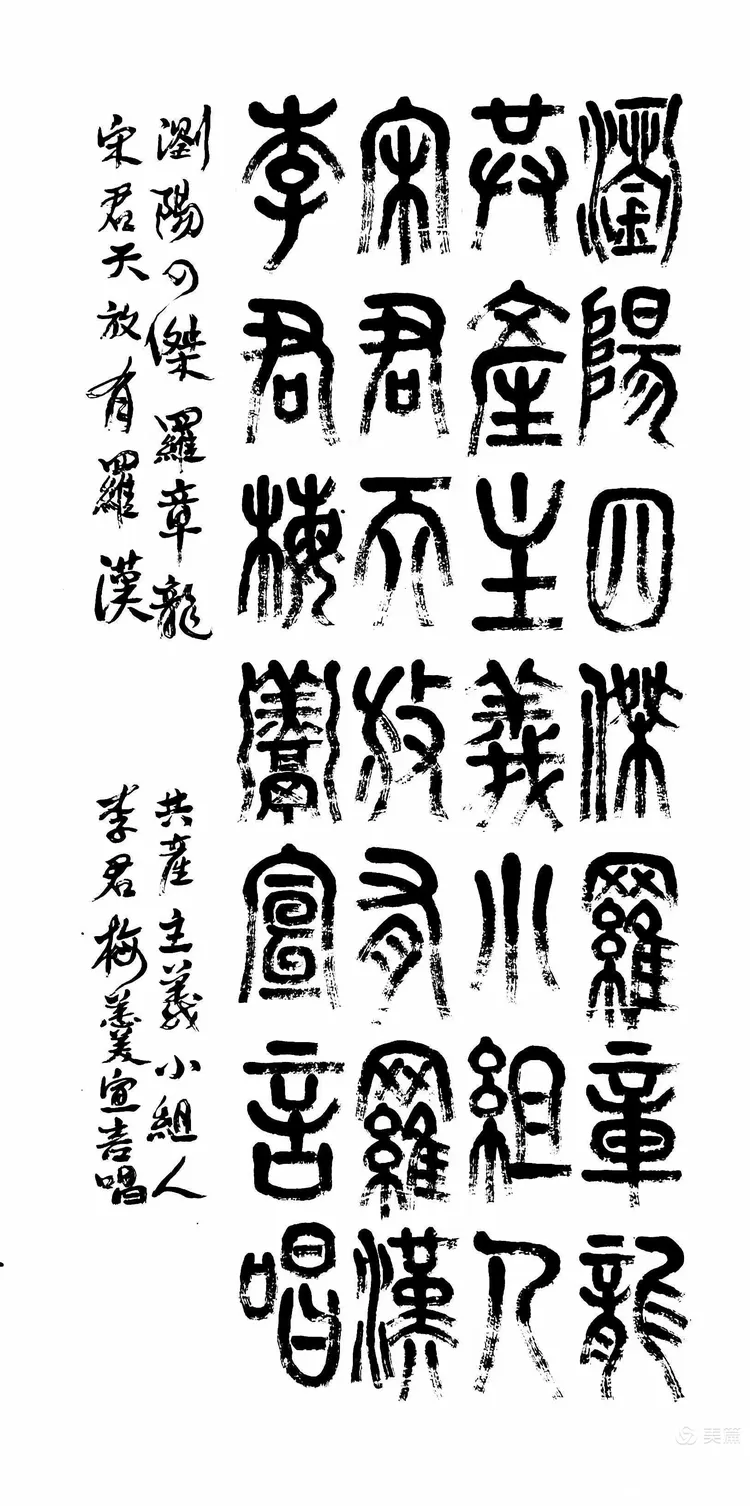 瀏陽四傑羅章龍
共產主義小組人
宋君天放有羅漢
李君梅羹宣言唱
瀏陽四傑羅章龍
共產主義小組人
宋君天放有羅漢
李君梅羹宣言唱
美篇